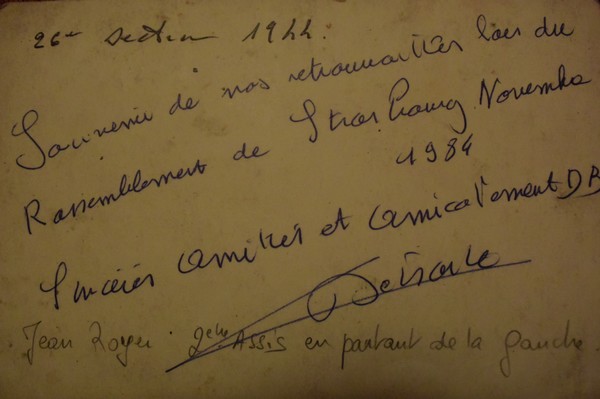 26e section 1944.
Souvenir de nos retrouvailles lors du
Rassemblement de Strasbourg Novembre
1984
Sincères amitiés et amicalement DB
Jean Royer. 2ème Assis en partant de la Gauche